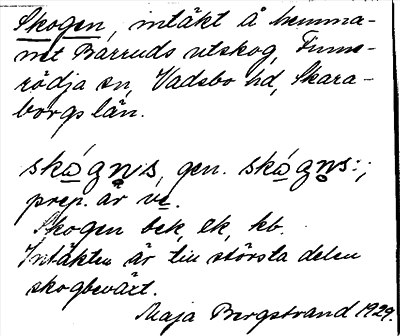 Skogen, intäkt å hemma-
net Barruds utskog, Finne-
rödja sn, Vadsbo hd, Skara-
borgs län.
skógn̥:s, gen. skógn̥s:;
prep. är ve.
Skogen bek, lk, kb.
Intäkten är till största delen
skogbeväxt.
Maja Bergstrand 1929.